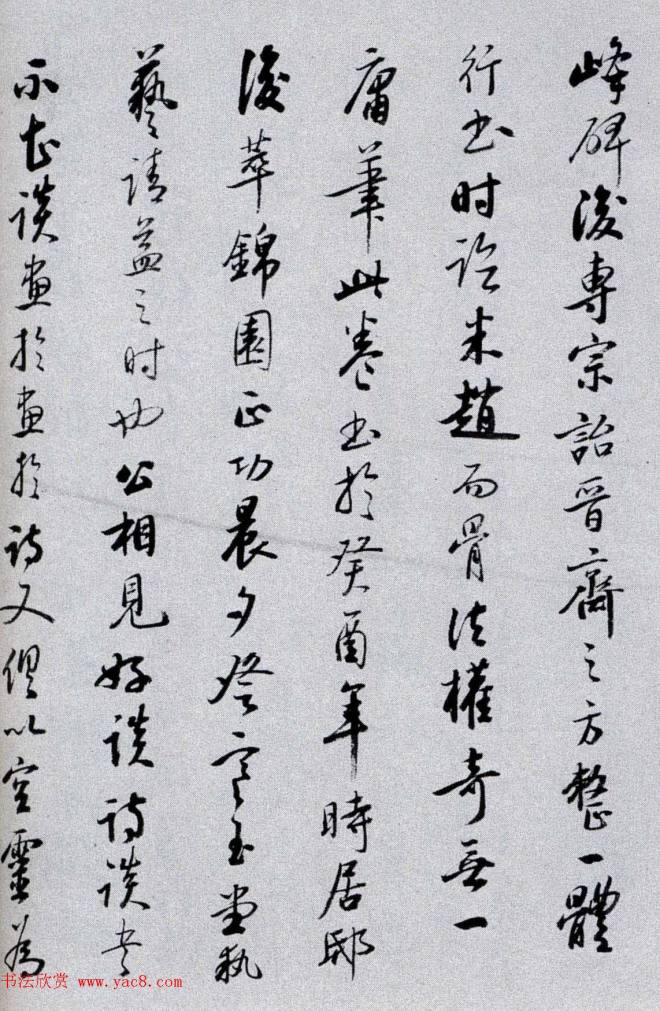 峰碑後專宗詒晉齋之方整一體
行书时詥米趙而骨法權奇無一
庸筆此卷书於癸酉年時居邸
後萃錦園正功晨夕登寒玉堂執
藝请益之时也公相見好談诗談书
不甚談画於画於诗又倶以空靈為
书法欣赏 www.yac8.com